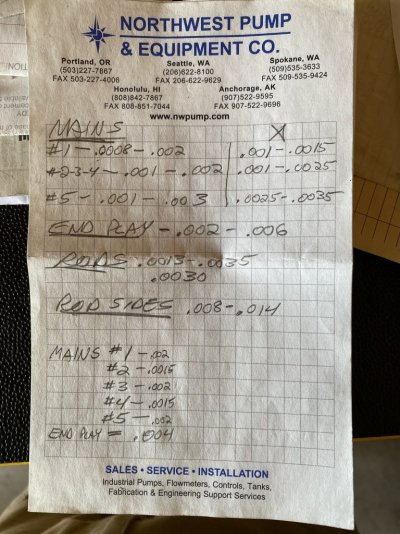 NORTHWEST PUMP
& EQUIPMENT CO.
Portland, OR Seattle, WA Spokane, WA
(503)227-7867 (206)622-8100 (509)535-3633
FAX 503-227-4006 FAX 206-622-9629 FAX 509-535-9424
Honolulu, HI Anchorage, AK
(808)842-7867 (907)522-9595
FAX 808-851-7044 FAX 907-522-9696
www.nwpump.com
MAINS X
#1 - .0008 - .002 .001 - .0015
#2-3-4 - .001 - .002 .001 - .0025
#5 - .001 - .003 .0025 - .0035
END PLAY - .002 - .006
RODS .0013 - .0035
.0030
ROD SIDES .008 - .014
MAINS #1 - .002
#2 - .0015
#3 - .002
#4 - .0015
#5 - .002
END PLAY = .004
SALES • SERVICE • INSTALLATION
Industrial Pumps, Flowmeters, Controls, Tanks,
Fabrication & Engineering Support Services